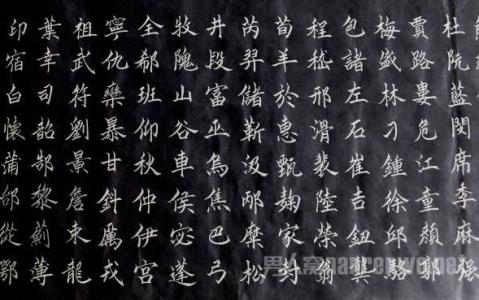 杜阮藍閔席季麻强
賈路婁危江童顏郭
梅盛林刁鍾徐邱駱
包諸左石崔吉鈕龔
程嵇邢滑裴陸榮翁
荀羊於惠甄麴家封
芮羿儲靳汲邴糜松
井段富巫烏焦巴弓
牧隗山谷車侯宓蓬
全郗班仰秋仲伊宮
寧仇欒暴甘鈄厲戎
祖武符劉景詹束龍
葉幸司韶郜黎薊薄
印宿白懷蒲邰從鄂